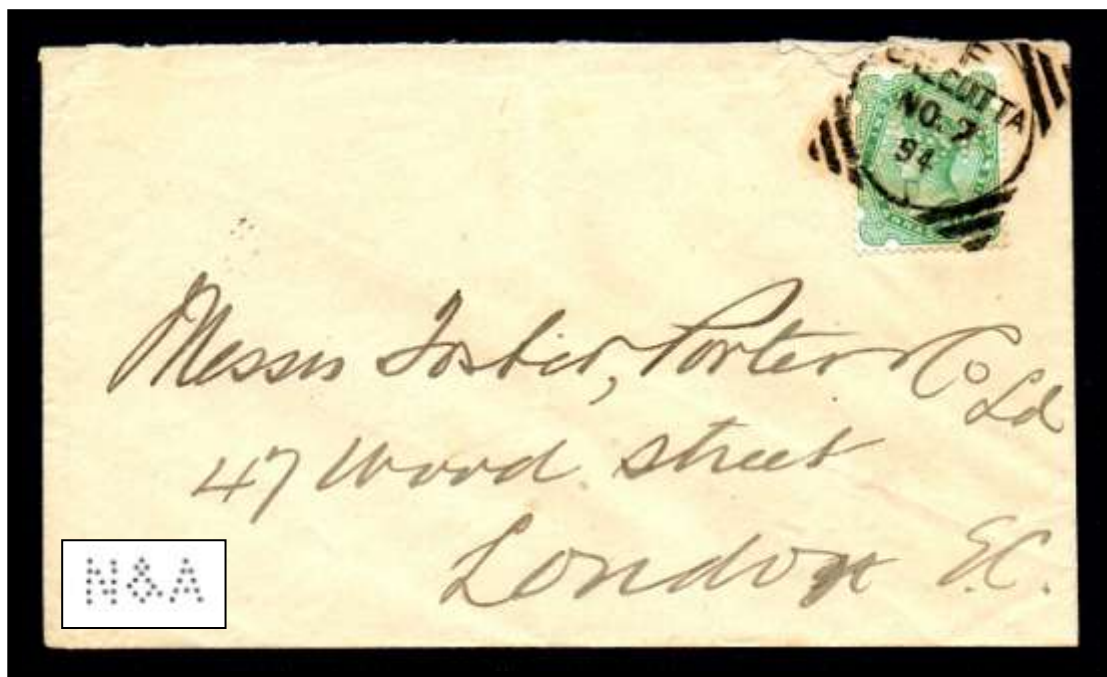 CALCUTTA
NO. 7
94
Messrs Foster, Porter & Co Ld
47 Wood Street
London E.C.
N&A